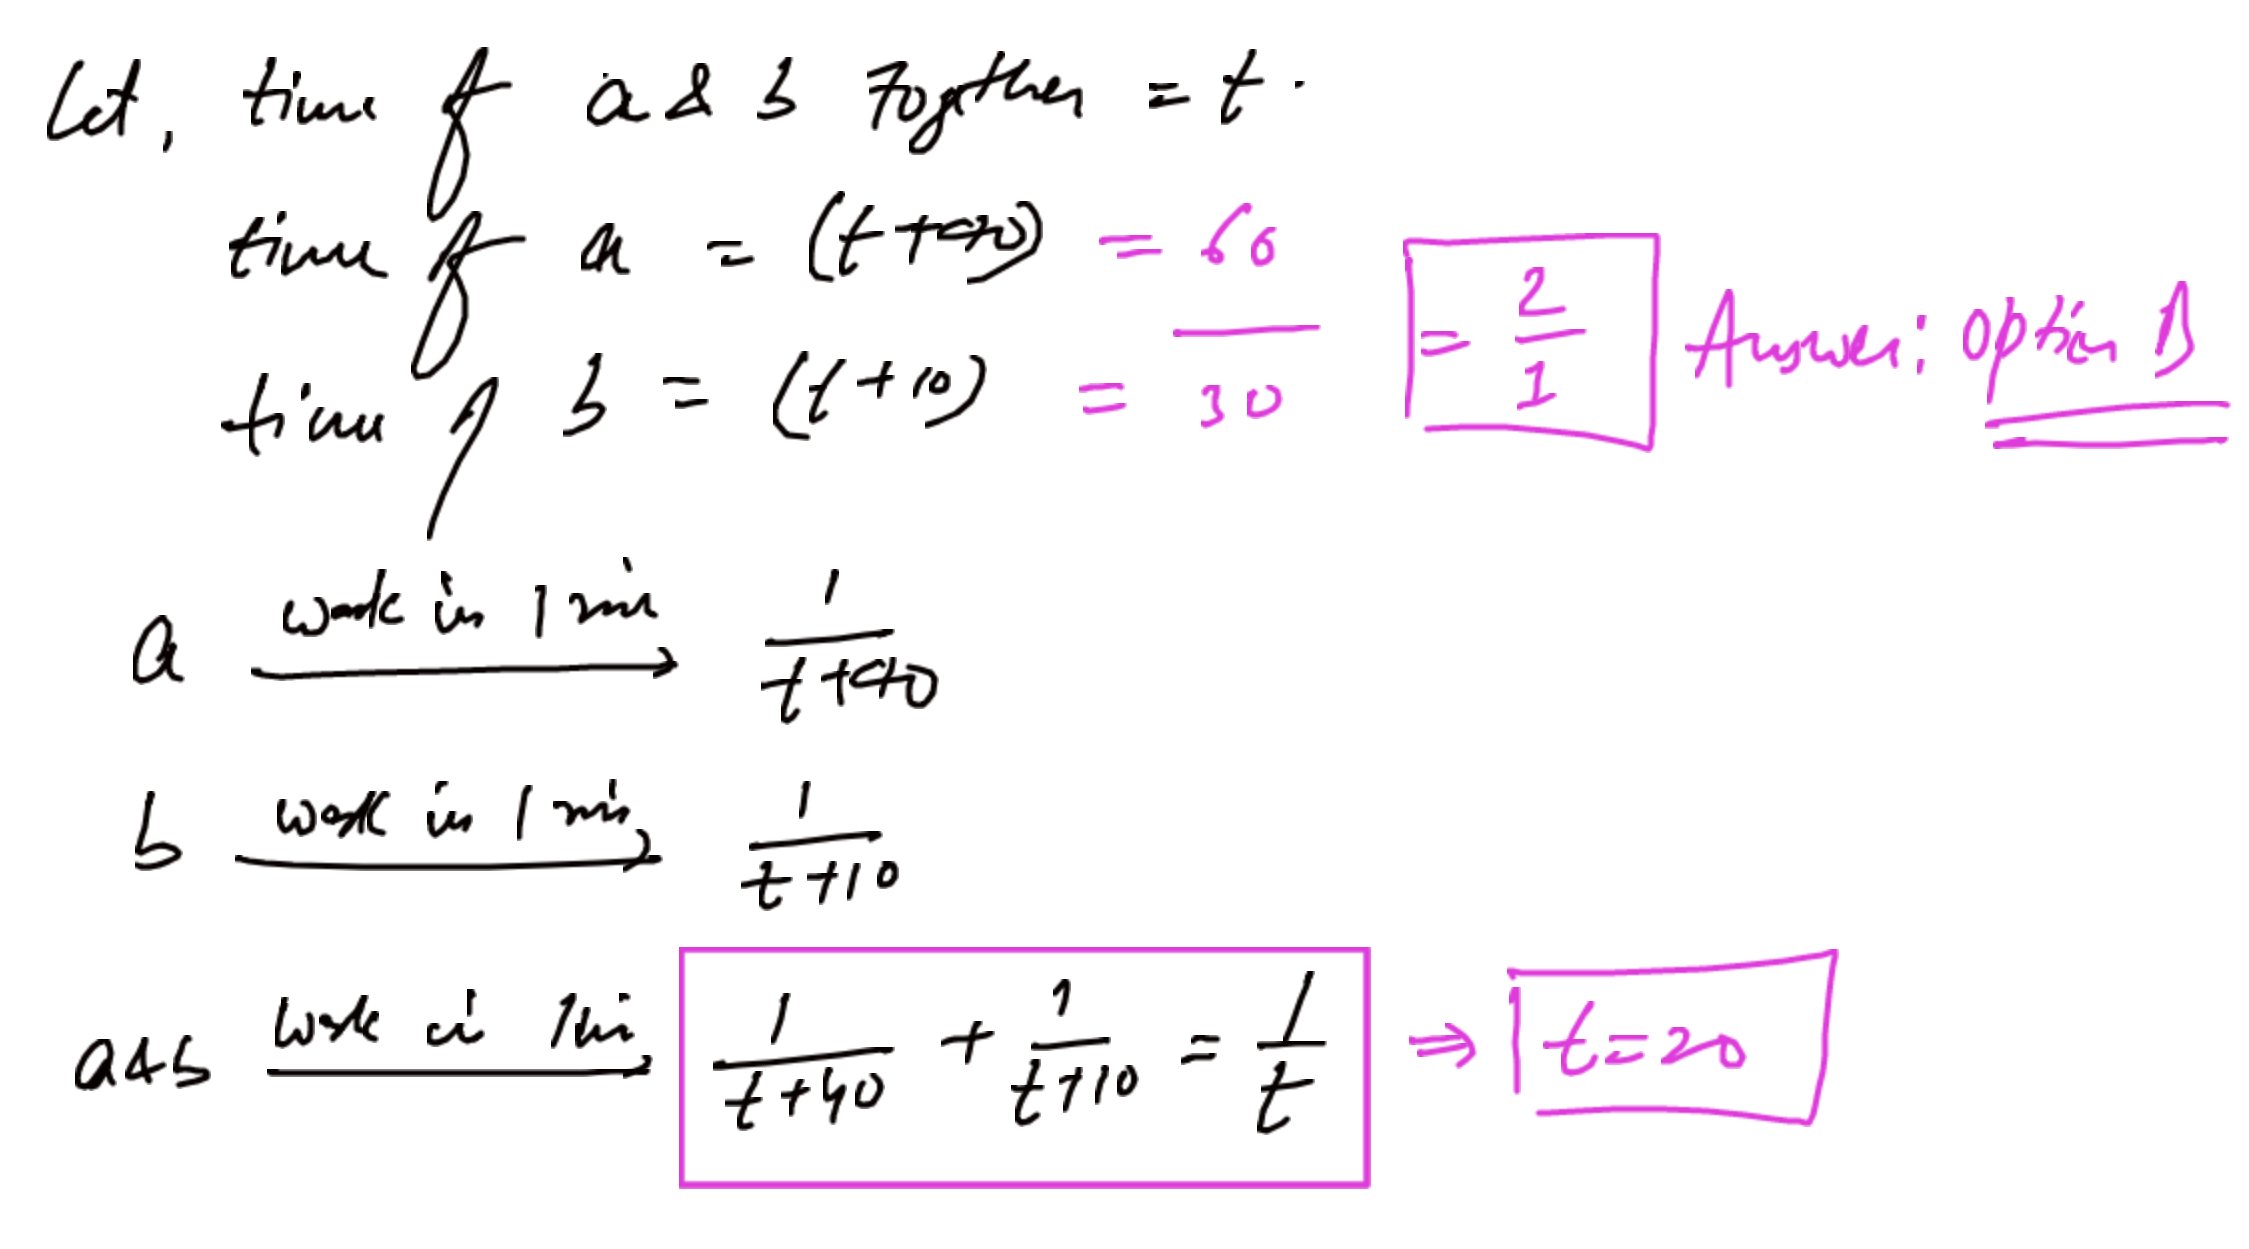 Let, time of a & b Together = t.
time of a = (t+40) = 60
time of b = (t+10) = 30
= 2/1 Answer: Option B
a work in 1 min → 1/(t+40)
b work in 1 min → 1/(t+10)
a&b work in 1 min → 1/(t+40) + 1/(t+10) = 1/t ⇒ t=20